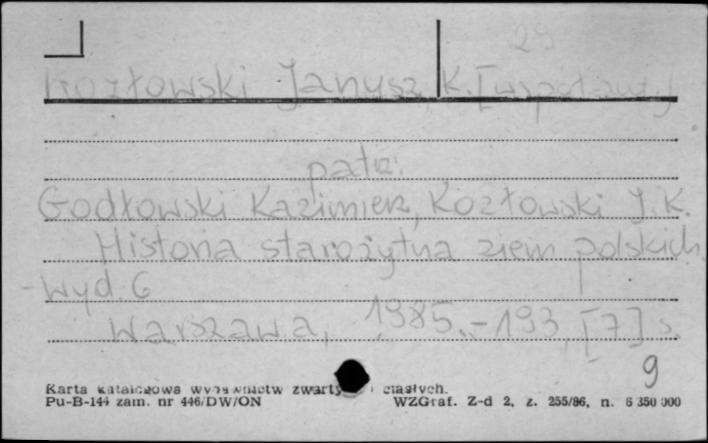 29
Kozłowski Janusz K. [współaut.]
patrz:
Godłowski Kazimierz, Kozłowski J. K.
Historia starożytna ziem polskich
- Wyd. 6
Warszawa, 1985. - 193, [7] s.
9
Karta katalogowa wydawnictw zwartych i ciągłych.
Pu-B-144 zam. nr 446/DW/ON WZGraf. Z-d 2, z. 255/86, n. 6 350 000